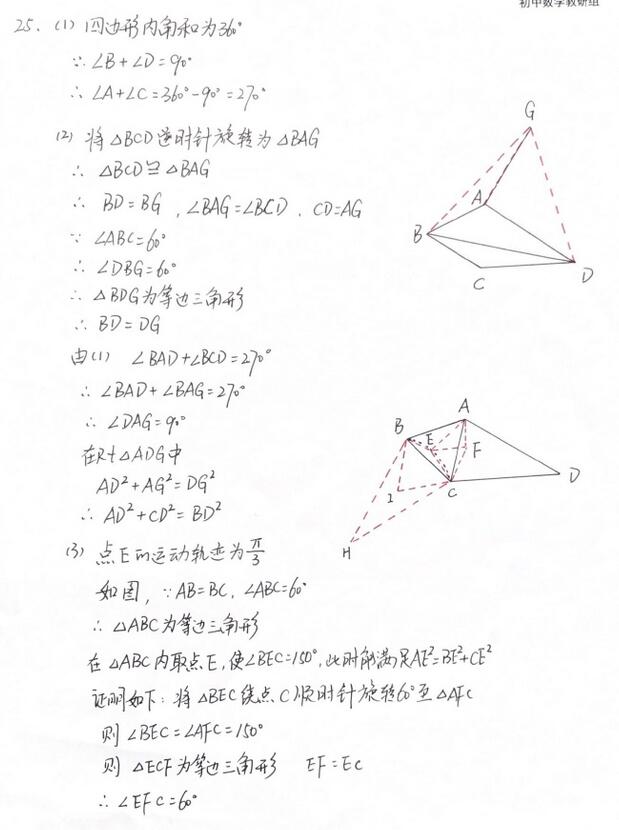 初中数学教研组
25. (1) 四边形内角和为360°
∵ ∠B+∠D=90°
∴ ∠A+∠C=360°-90°=270°
(2) 将△BCD逆时针旋转为△BAG
∴ △BCD≌△BAG
∴ BD=BG , ∠BAG=∠BCD . CD=AG
∵ ∠ABC=60°
∴ ∠DBG=60°
∴ △BDG为等边三角形
∴ BD=DG
由(1) ∠BAD+∠BCD=270°
∴ ∠BAD+∠BAG=270°
∴ ∠DAG=90°
在Rt△ADG中
AD²+AG²=DG²
∴ AD²+CD²=BD²
(3) 点E的运动轨迹为π/3
如图, ∵ AB=BC, ∠ABC=60°
∴ △ABC为等边三角形
在△ABC内取点E,使∠BEC=150°,此时能满足AE²=BE²+CE²
证明如下: 将△BEC绕点C顺时针旋转60°至△AFC
则∠BEC=∠AFC=150°
则△ECF为等边三角形 EF=EC
∴ ∠EFC=60°
G
A
B
C
D
A
B
E
F
I
C
D
H